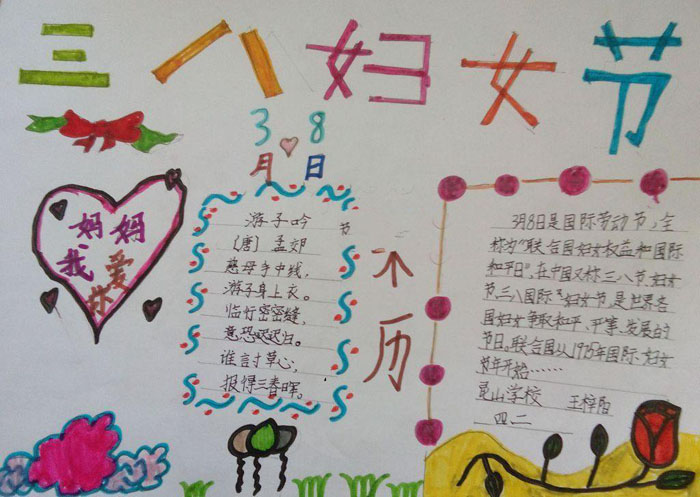 三八妇女节
3 8
月 日
妈妈
我爱
你
游子吟
(唐)孟郊
慈母手中线,
游子身上衣。
临行密密缝,
意恐迟迟归。
谁言寸草心,
报得三春晖。
节
不
历
3月8日是国际劳动节,全
称为“联合国妇女权益和国际
和平日”,在中国又称三八节、妇女
节、三八国际”妇女节,是世界各
国妇女争取和平、平等、发展的
节日。联合国从1975年国际妇女
节年开始……
昆山学校 王梓阳
四二